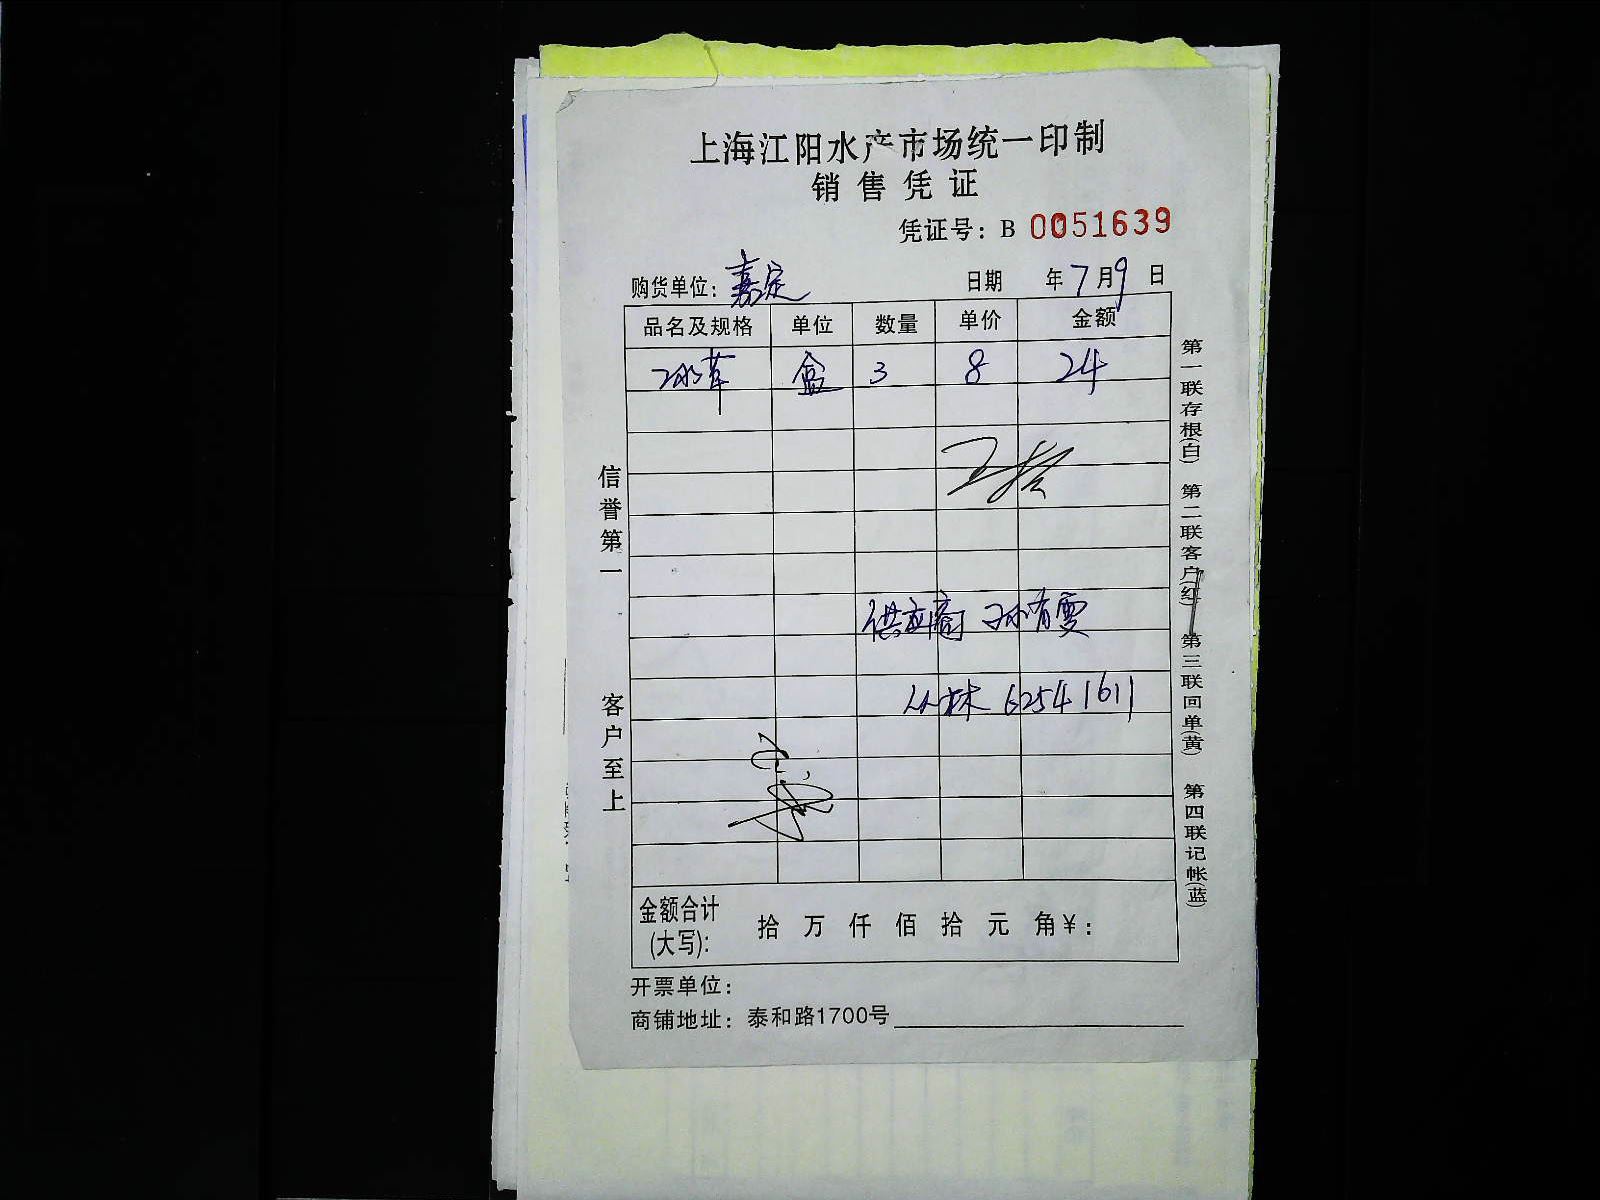 上海江阳水产市场统一印制
销售凭证
凭证号：B 0051639
购货单位：嘉定 日期 年7月9日
品名及规格 单位 数量 单价 金额
冰草 盒 3 8 24
供应商 孙有雯
丛林 62541611
金额合计(大写)： 拾 万 仟 佰 拾 元 角¥：
开票单位：
商铺地址：泰和路1700号
信誉第一
客户至上
第一联存根(白) 第二联客户(红) 第三联回单(黄) 第四联记帐(蓝)